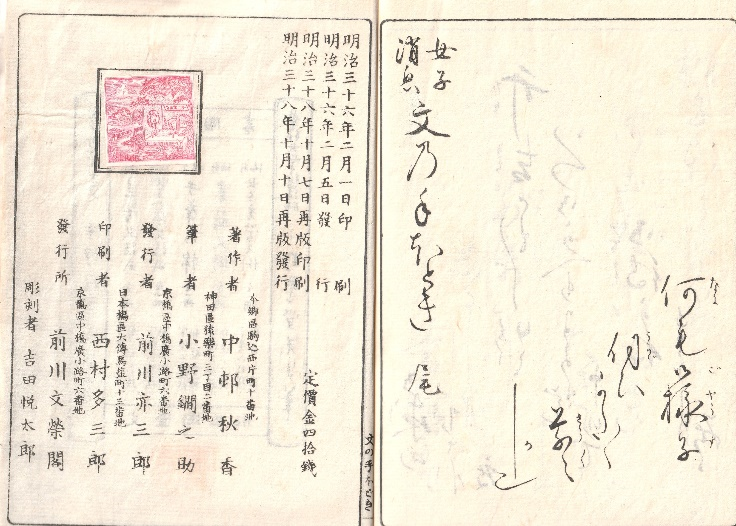 何も御様子
伺ひ
かしこ
女子消息
文乃手本とき 尾
明治三十六年二月一日印刷
明治三十六年二月五日發行
明治三十八年十月七日再版印刷
明治三十八年十月十日再版發行
定價金四拾錢
本郷區駒込西片町十番地
著作者 中邨秋香
神田區猿樂町三丁目二番地
筆者 小野鐗之助
京橋區中橋廣小路町六番地
發行者 前川亦三郎
日本橋區大傳馬塩町十三番地
印刷者 西村多三郎
京橋區中橋廣小路町六番地
發行所 前川文榮閣
彫刻者 吉田悦太郎
文の手本とき